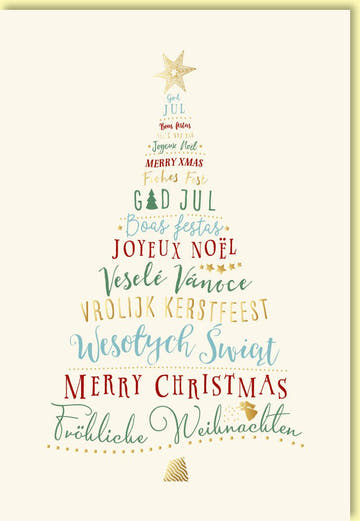 God
JUL
Boas festas
Joyeux Noël
MERRY XMAS
Frohes Fest
GOD JUL
Boas festas
JOYEUX NOËL
Veselé Vánoce
VROLIJK KERSTFEEST
Wesołych Świąt
MERRY CHRISTMAS
Fröhliche Weihnachten